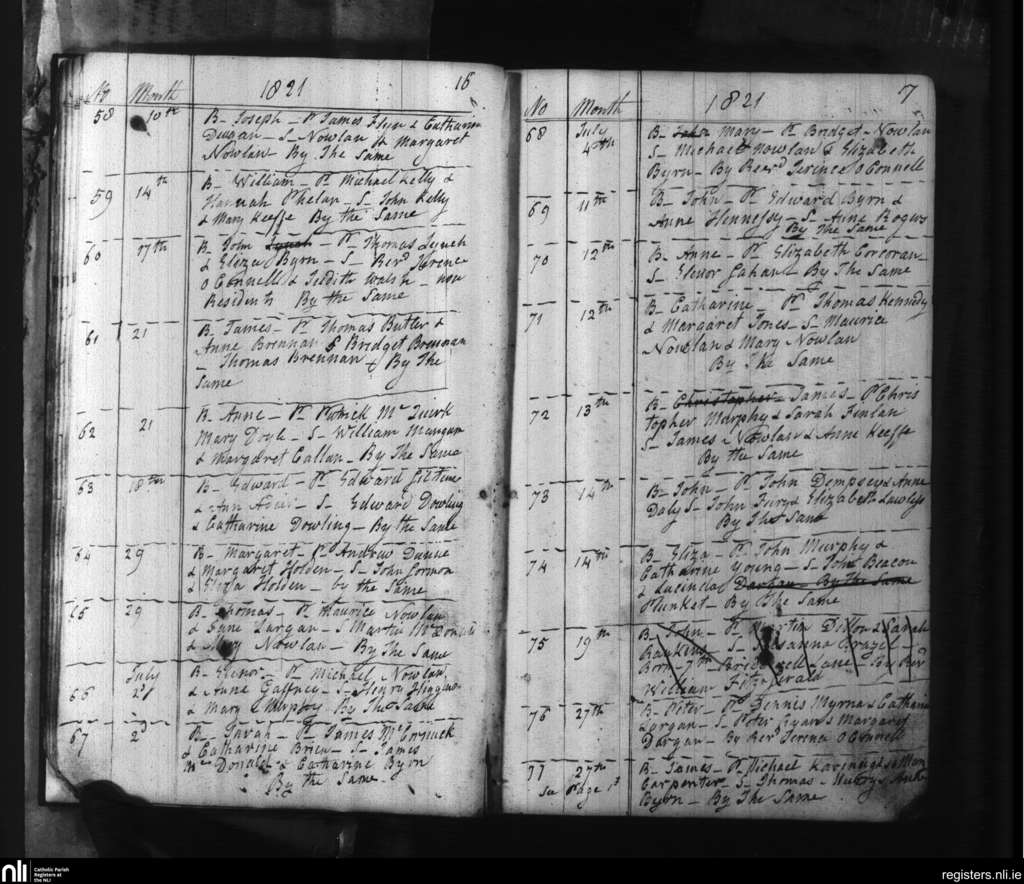 No Month 1821 16
58 10th B- Joseph - Pr James Flyn & Catharin
Deegan - S- Nowlan & Margaret
Nowlan - By The Same
59 14th B- William - Pr Michael Kelly &
Hannah Phelan - S- John Kelly
& Mary Keeffe By the Same
60 17th B- John Lynch - Pr Thomas Lynch
& Eliza Byrn - S- Revd Terence
O Connell & Judith Walsh - non
Residents By the Same
61 21 B- James - Pr Thomas Butler &
Anne Brennan S Bridget Brennan
- Thomas Brennan & By The
Same
62 21 B- Anne - Pr Patrick Mc Quirk
Mary Doyle - S- William Mangan
& Margaret Callan - By The Same
63 18th B- Edward - Pr Edward
& Ann - S- Edward Dowling
& Catharine Dowling - By the Same
64 29 B- Margaret - Pr Andrew Dunne
& Margaret Holden - S- John Gormon
& Eliza Holden - by the Same
65 29 B- Thomas - Pr Maurice Nowlan
& Jane Largan - S Martin Mc Donald
& Mary Nowlan - By The Same
66 July 2d B- Elenor - Pr Michael Nowlan
& Anne Gaffney - S- Henry Higgins
& Mary Murphy - By The Same
67 2d B- Sarah - Pr James Mc Cormick
& Catharine Brien - S- James
Mc Donald & Catharine Byrn
By the Same -
No Month 1821 7
68 July 4th B- John Mary - Pr Bridget Nowlan
S- Michael Nowlan & Elizabeth
Byrn - By Revd Terence O Connell
69 11th B- John - Pr Edward Byrn &
Anne Hennessy - S- Anne Rogers
By The Same
70 12th B- Anne - Pr Elizabeth Corcoran
S- Elenor Gahan - By The Same
71 12th B- Catharine - Pr Thomas Kennedy
& Margaret Jones - S- Maurice
Nowlan & Mary Nowlan
By The Same
72 13th B- Christopher - James - Pr Chris
topher Murphy & Sarah Finlan
S- James Nowlan & Anne Keeffe
By the Same
73 14th B- John - Pr John Dempsey & Anne
Daly S- John Fury & Elizabeth Lawless
By The Same
74 14th B- Eliza - Pr John Murphy &
Catharine Young - S- John Beacon
& Lucinda Darhan - By the Same
Plunket - By The Same
75 19th B- John - Pr Martin Dillon & Sarah
Rankins - S- Susanna Brazel -
Born 7th Bridewell Lane - By Revd
William Fitzgerald
76 27th B- Peter - Pr Dennis Myrna & Catharin
Largan - S- Peter Ryan & Margaret
Dargan - By Revd Terence O Connell
77 27th B- James - Pr Michael Kavenagh & Mary
Carpenter - S- Thomas
Byrn - By The Same
See Page 1st
nli Catholic Parish
Registers at
the NLI
registers.nli.ie